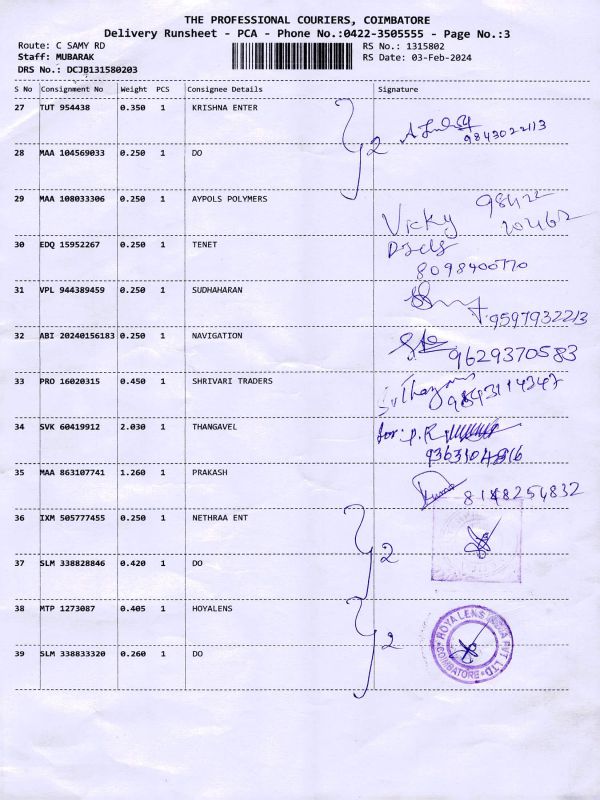 THE PROFESSIONAL COURIERS, COIMBATORE
Delivery Runsheet - PCA - Phone No.:0422-3505555 - Page No.:3
Route: C SAMY RD RS No.: 1315802
Staff: MUBARAK RS Date: 03-Feb-2024
DRS No.: DCJB131580203
S No Consignment No Weight PCS Consignee Details Signature
27 TUT 954438 0.350 1 KRISHNA ENTER
9843022113
28 MAA 104569033 0.250 1 DO
2
29 MAA 108033306 0.250 1 AYPOLS POLYMERS
Vicky 98422
20462
30 EDQ 15952267 0.250 1 TENET
8098400770
31 VPL 944389459 0.250 1 SUDHAHARAN
9597932213
32 ABI 20240156183 0.250 1 NAVIGATION
9629370583
33 PRO 16020315 0.450 1 SHRIVARI TRADERS
9843114347
34 SVK 60419912 2.030 1 THANGAVEL
for: P.R
9363104816
35 MAA 863107741 1.260 1 PRAKASH
8148254832
36 IXM 505777455 0.250 1 NETHRAA ENT
2
37 SLM 338828846 0.420 1 DO
38 MTP 1273087 0.405 1 HOYALENS
2
HOYA LENS INDIA PVT LTD
COIMBATORE
39 SLM 338833320 0.260 1 DO